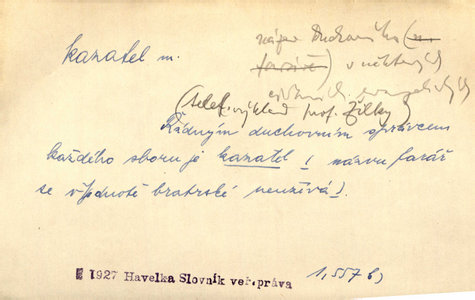 kazatel m.
název duchovního (
farářů) v některých
církvích evangelických
(telef. výklad prof. Žilky)
Řádným duchovním správcem
každého sboru je kazatel (názvu farář
se v Jednotě bratrské neužívá).
1927 Havelka Slovník veř. práva
1, 557 b)